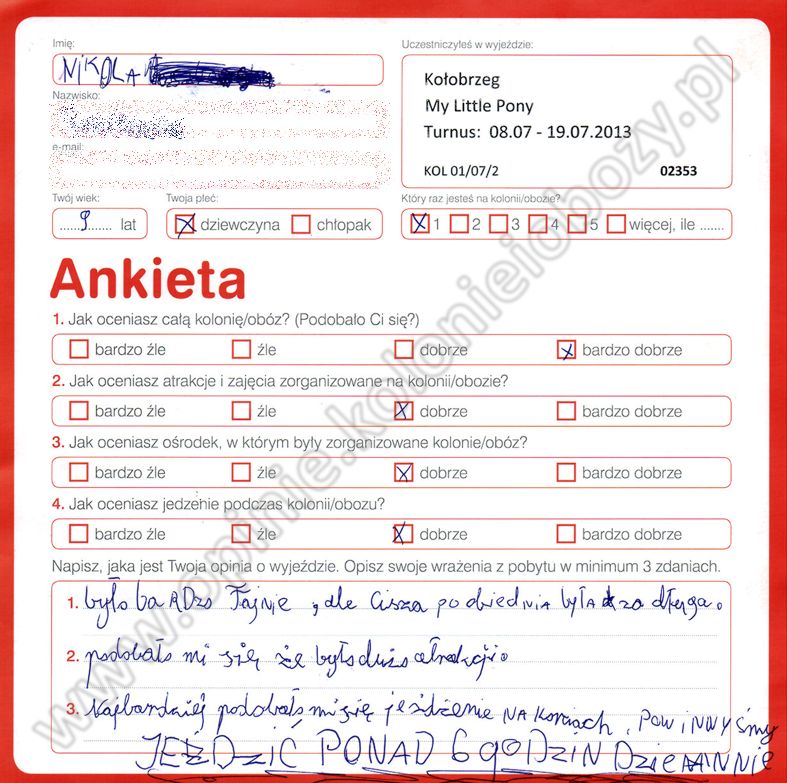 Imię:
NIKOLA
Uczestniczyłeś w wyjeździe:
Kołobrzeg
My Little Pony
Turnus: 08.07 - 19.07.2013
KOL 01/07/2 02353
Nazwisko:
e-mail:
Twój wiek:
9 lat
Twoja płeć:
dziewczyna chłopak
Który raz jesteś na kolonii/obozie?
1 2 3 4 5 więcej, ile .......
Ankieta
1. Jak oceniasz całą kolonię/obóz? (Podobało Ci się?)
bardzo źle źle dobrze bardzo dobrze
2. Jak oceniasz atrakcje i zajęcia zorganizowane na kolonii/obozie?
bardzo źle źle dobrze bardzo dobrze
3. Jak oceniasz ośrodek, w którym były zorganizowane kolonie/obóz?
bardzo źle źle dobrze bardzo dobrze
4. Jak oceniasz jedzenie podczas kolonii/obozu?
bardzo źle źle dobrze bardzo dobrze
Napisz, jaka jest Twoja opinia o wyjeździe. Opisz swoje wrażenia z pobytu w minimum 3 zdaniach.
1. było baRDzo fajnie, ale cisza pobiednia była za długa.
2. podobało mi się że było dużo atrakcji.
3. Najbardziej podobało mi się jeżdżenie NA koniach. POWINNYśmy
JEŹDZIĆ PONAD 6 GODZIN DZIENNIE
www.opinie.kolonieiobozy.pl